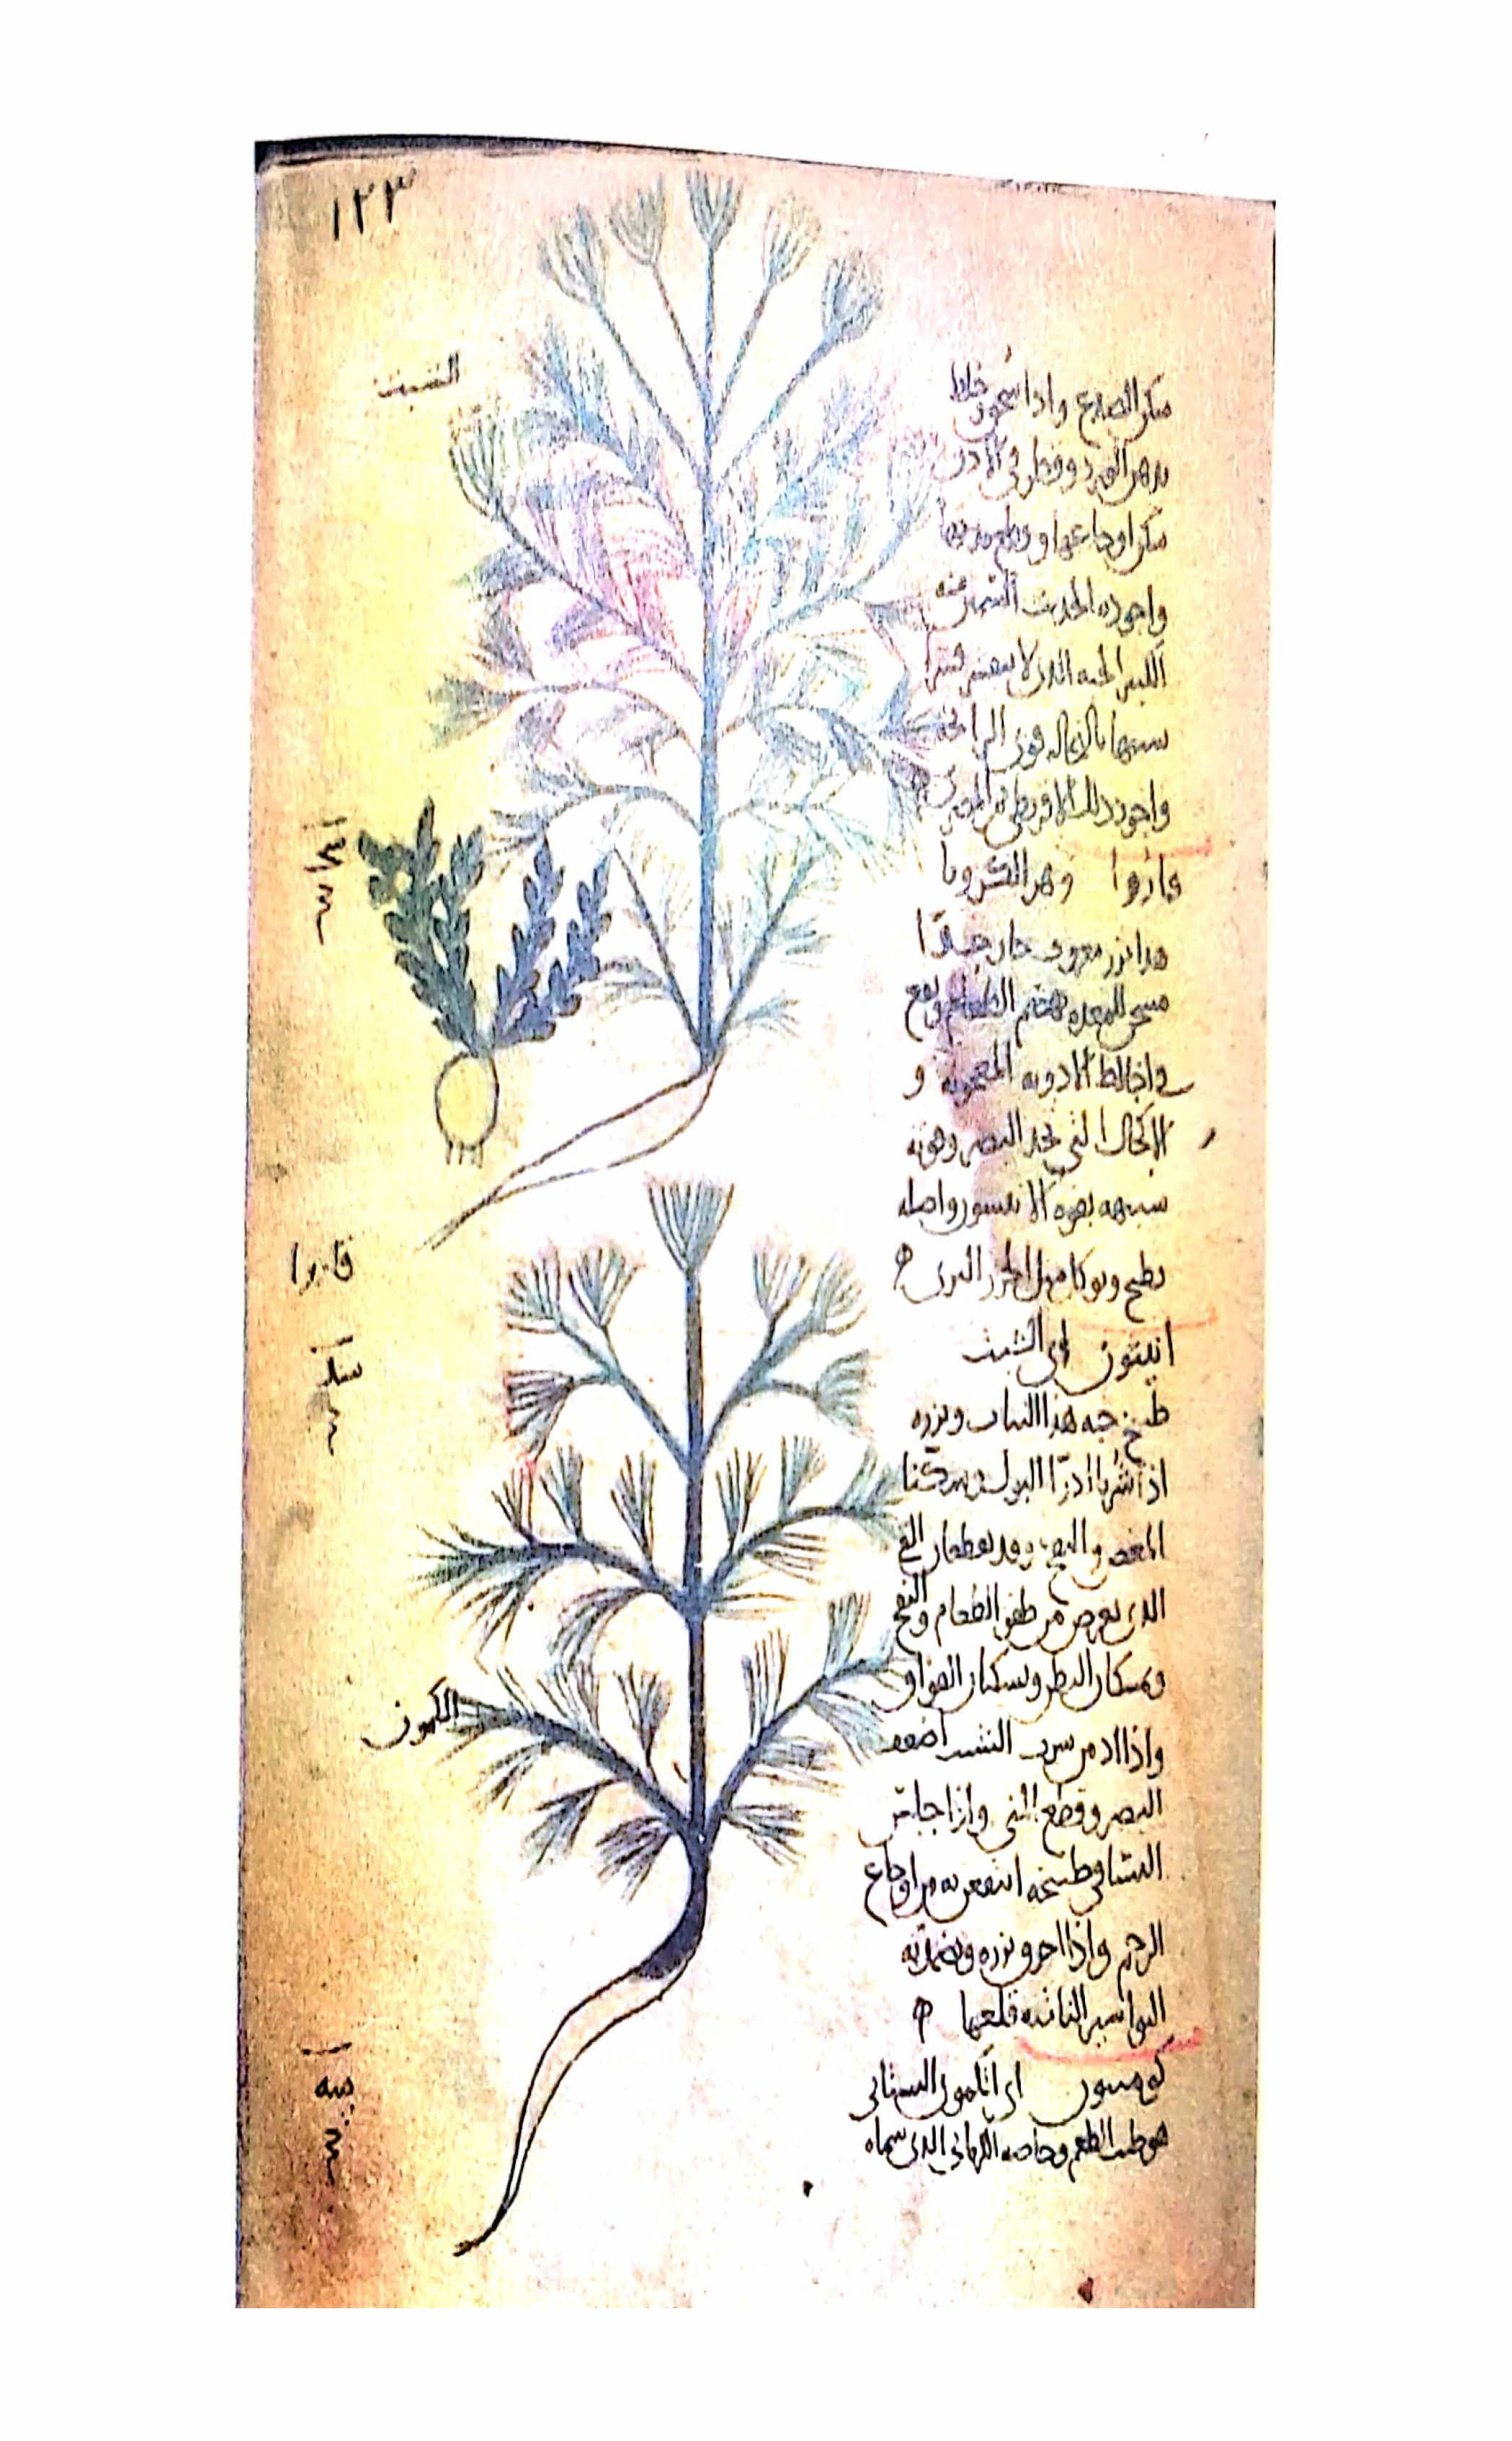 ١٢٣
الشبث
سكن الصداع واذا سحق وخلط
بدهن الورد وقطر في الاذن
سكن اوجاعها و
واجوده الحديث
الكبير الحبه الذي لا قشرا
شبيها بالنخاله قوى الرائحه
واجود ذلك الاقريطي ثم المصري
قاروا وهو الكرويا
هذا بزر معروف حار جدًا
مسخن للمعده يهضم الطعام ويقع
في اخلاط الادويه المعجونه و
الاكحال التي تحد البصر وقوته
شبيهه بقوه الانيسون واصله
يطبخ ويوكل مثل الجزر البرى
قاروا
انيثون اى الشبث
طبيخ جمه هذا النبات وبزره
اذا شربا ادرّا البول وسكنا
المغص والنفخ وقد يقطعان القي
الذى يعرض من طفو الطعام والنفخ
ويمسكان البطن ويسكنان الفواق
واذا ادمن شرب الشبث اضعف
البصر وقطع المني واذا جلس
النسا في طبيخه انتفعن به من اوجاع
الرحم واذا احرق بزره وتضمد به
البواسير الناتئه قلعها
الكمون
كومينون اى الكمون البستاني
هو طيب الطعم وخاصه الكرماني الذى سماه